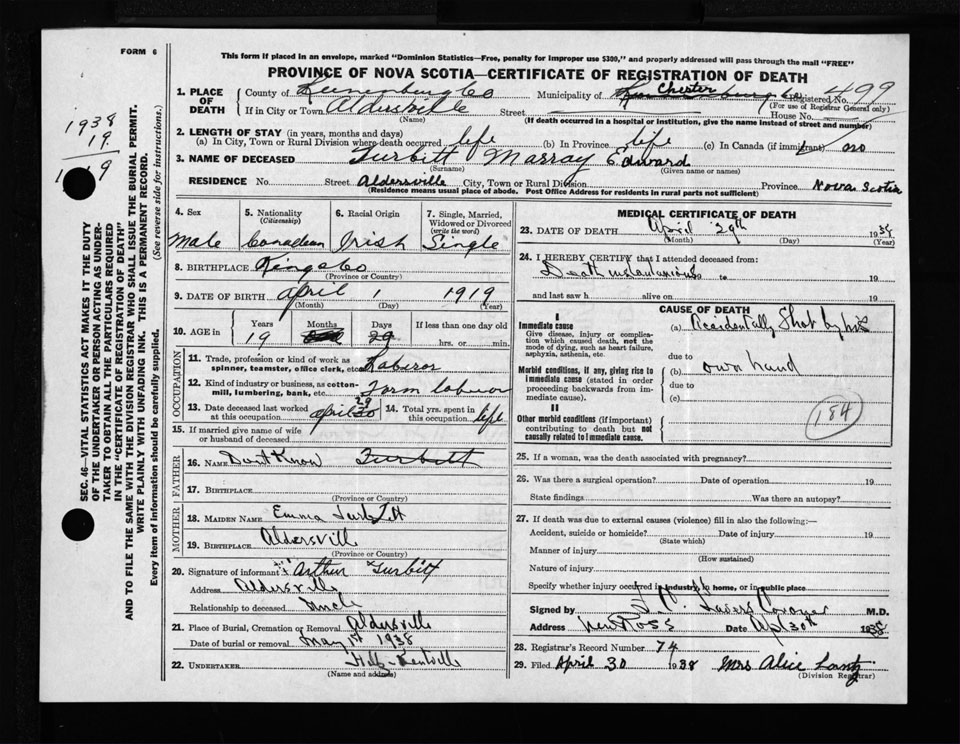 FORM 6
This form if placed in an envelope, marked "Dominion Statistics—Free, penalty for improper use $300," and properly addressed will pass through the mail "FREE"
PROVINCE OF NOVA SCOTIA—CERTIFICATE OF REGISTRATION OF DEATH
1938
19
1919
SEC. 46—VITAL STATISTICS ACT MAKES IT THE DUTY
OF THE UNDERTAKER OR PERSON ACTING AS UNDER-
TAKER TO OBTAIN ALL THE PARTICULARS REQUIRED
IN THE "CERTIFICATE OF REGISTRATION OF DEATH"
AND TO FILE THE SAME WITH THE DIVISION REGISTRAR WHO SHALL ISSUE THE BURIAL PERMIT.
WRITE PLAINLY WITH UNFADING INK. THIS IS A PERMANENT RECORD.
Every item of information should be carefully supplied. (See reverse side for instructions.)
1. PLACE OF DEATH
County of Lunenburg Co Municipality of Chester Registered No. 499
(For use of Registrar General only)
If in City or Town Aldersville Street House No.
(Name) (If death occurred in a hospital or institution, give the name instead of street and number)
2. LENGTH OF STAY (in years, months and days)
(a) In City, Town or Rural Division where death occurred life (b) In Province life (c) In Canada (if immigrant)
3. NAME OF DECEASED Turbitt Marray Edward
(Surname) (Given name or names)
RESIDENCE No. Street Aldersville City, Town or Rural Division Province Nova Scotia
(Residence means usual place of abode. Post Office Address for residents in rural parts not sufficient)
4. Sex 5. Nationality (Citizenship) 6. Racial Origin 7. Single, Married, Widowed or Divorced (write the word)
Male Canadian Irish Single
8. BIRTHPLACE Kings Co
(Province or Country)
9. DATE OF BIRTH April 1 1919
(Month) (Day) (Year)
10. AGE in Years Months Days If less than one day old
19 29 hrs. or min.
OCCUPATION
11. Trade, profession or kind of work as spinner, teamster, office clerk, etc. Laborer
12. Kind of industry or business, as cotton-mill, lumbering, bank, etc. Farm labour
13. Date deceased last worked at this occupation April 29 14. Total yrs. spent in this occupation life
15. If married give name of wife or husband of deceased
FATHER
16. NAME Dont Know Turbitt
17. BIRTHPLACE
(Province or Country)
MOTHER
18. MAIDEN NAME Emma Turbitt
19. BIRTHPLACE Aldersville
(Province or Country)
20. Signature of informant Arthur Turbitt
Address Aldersville
Relationship to deceased Uncle
21. Place of Burial, Cremation or Removal Aldersville
Date of burial or removal May 1st 1938
22. UNDERTAKER Kentville
(Name and address)
MEDICAL CERTIFICATE OF DEATH
23. DATE OF DEATH April 29th 1938
(Month) (Day) (Year)
24. I HEREBY CERTIFY that I attended deceased from:
Death instantanious to 19
and last saw h alive on 19
CAUSE OF DEATH
I
Immediate cause
Give disease, injury or complication which caused death, not the mode of dying, such as heart failure, asphyxia, asthenia, etc.
(a) Accidentally Shot by his
due to
Morbid conditions, if any, giving rise to immediate cause (stated in order proceeding backwards from immediate cause).
(b) own hand
due to
(c)
II
Other morbid conditions (if important) contributing to death but not causally related to immediate cause.
184
25. If a woman, was the death associated with pregnancy?
26. Was there a surgical operation? Date of operation 19
State findings Was there an autopsy?
27. If death was due to external causes (violence) fill in also the following:—
Accident, suicide or homicide? Date of injury 19
(State which)
Manner of injury
(How sustained)
Nature of injury
Specify whether injury occurred in industry, in home, or in public place
Signed by Coroner M.D.
Address New Ross Date Apl 30th 1938
28. Registrar's Record Number 74
29. Filed April 30 1938 Mrs Alice Lantz
(Division Registrar)